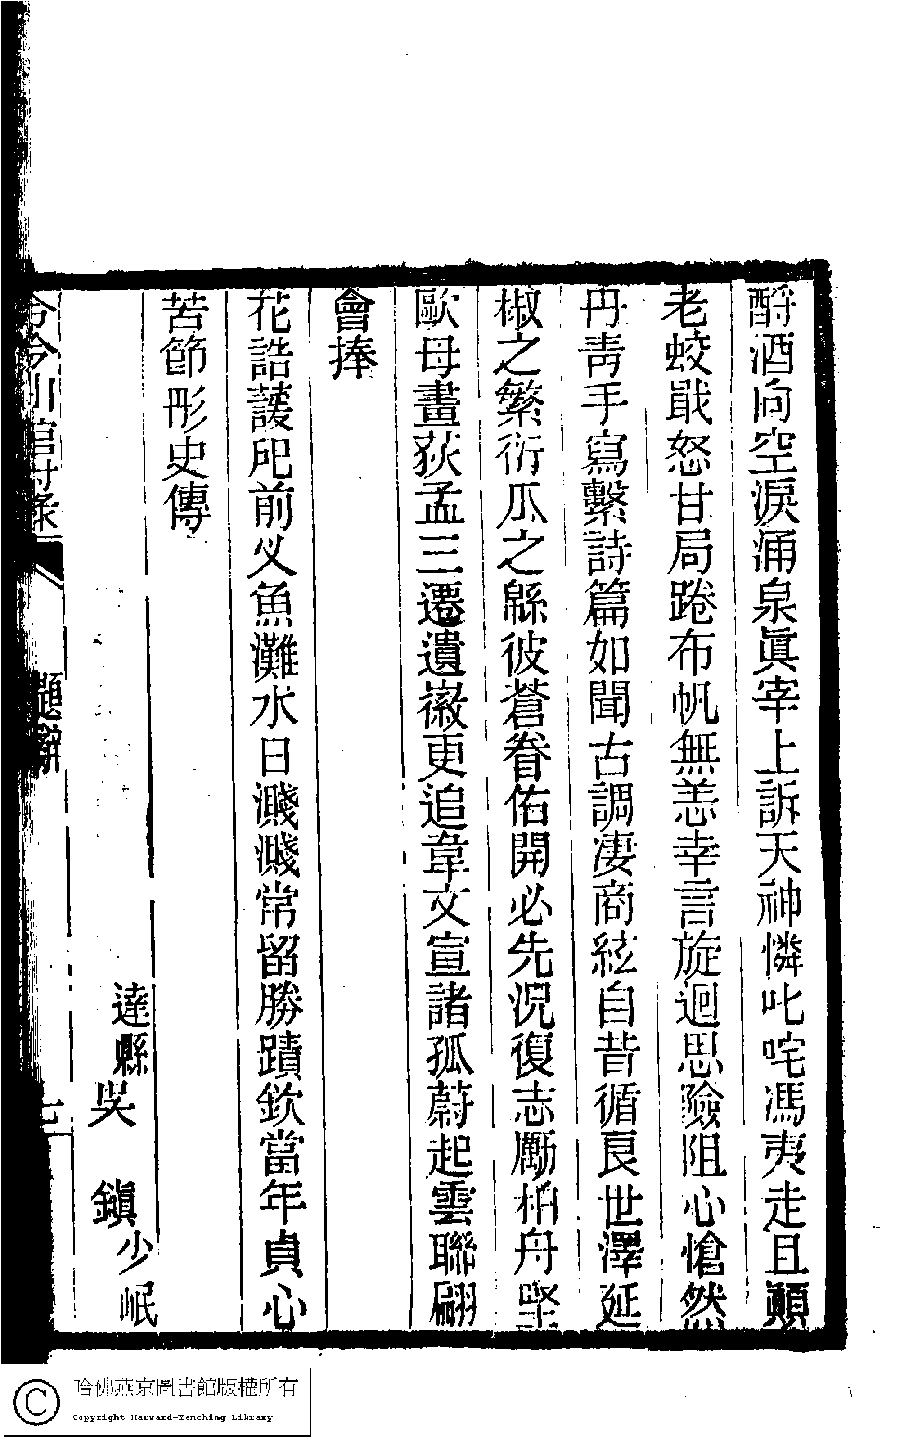 酹酒向空淚涌泉眞宰上訴天神憐叱咤馮夷走且顚
老蛟戢怒甘局踡布帆無恙幸言旋迴思險阻心愴然
丹靑手寫繫詩篇如聞古調凄商絃自昔循良世澤延
椒之繁衍瓜之緜彼蒼眷佑開必先況復志勵柏舟堅
歐母畫荻孟三遷遺徽更追韋文宣諸孤蔚起雲聯翩
會捧
花誥護戺前义魚灘水日濺濺常留勝蹟欽當年貞心
苦節彤史傳
達縣吳 鎭少岷
題辭
七
哈佛燕京圖書館版權所有
Copyright Harvard-Yenching Library